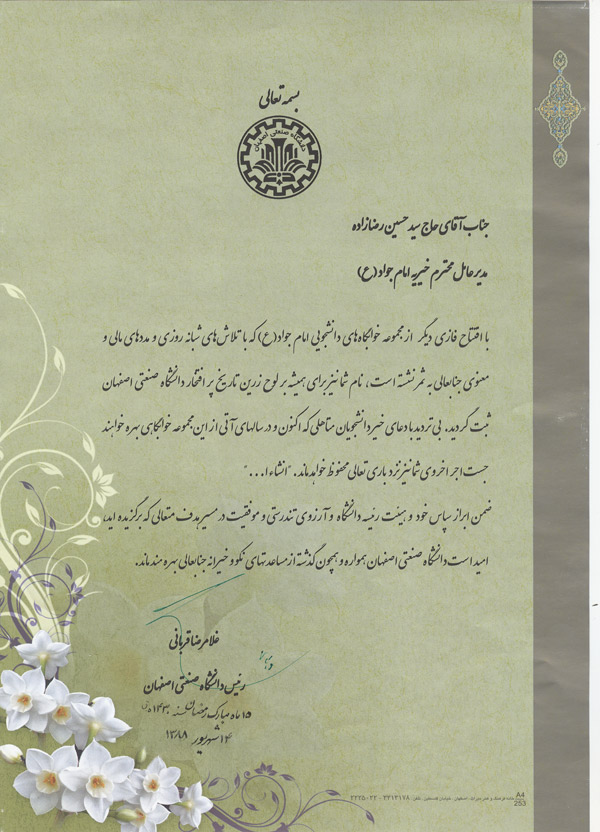 بسمه تعالی
دانشگاه صنعتی اصفهان
جناب آقای حاج سید حسین رضازاده
مدیر عامل محترم خیریه امام جواد (ع)
با افتتاح فازی دیگر از مجموعه خوابگاه‌های دانشجویی امام جواد (ع) که با تلاش‌های شبانه روزی و مددهای مالی و
معنوی جنابعالی به ثمر نشسته است، نام شما نیز برای همیشه بر لوح زرین تاریخ پر افتخار دانشگاه صنعتی اصفهان
ثبت گردید. بی تردید با دعای خیر دانشجویان متاهلی که اکنون و در سالهای آتی از این مجموعه خوابگاهی بهره خواهند
جست اجر اخروی شما نیز نزد باری تعالی محفوظ خواهد ماند. "انشاء ا..."
ضمن ابراز سپاس خود و هیئت رئیسه دانشگاه و آرزوی تندرستی و موفقیت در مسیر هدف متعالی که برگزیده اید،
امید است دانشگاه صنعتی اصفهان همواره و همچون گذشته از مساعدتهای نکو و خیرانه جنابعالی بهره مند ماند.
غلامرضا قربانی
رئیس دانشگاه صنعتی اصفهان
۱۵ ماه مبارک رمضان سنه ۱۴۳۰ ه ق
۱۴ شهریور ۱۳۸۸
A4
253
خانه فرهنگ و هنر میراث، اصفهان، خیابان فلسطین، تلفن: ۲۲۱۳۱۲۸ - ۲۲۲۵۰۲۲